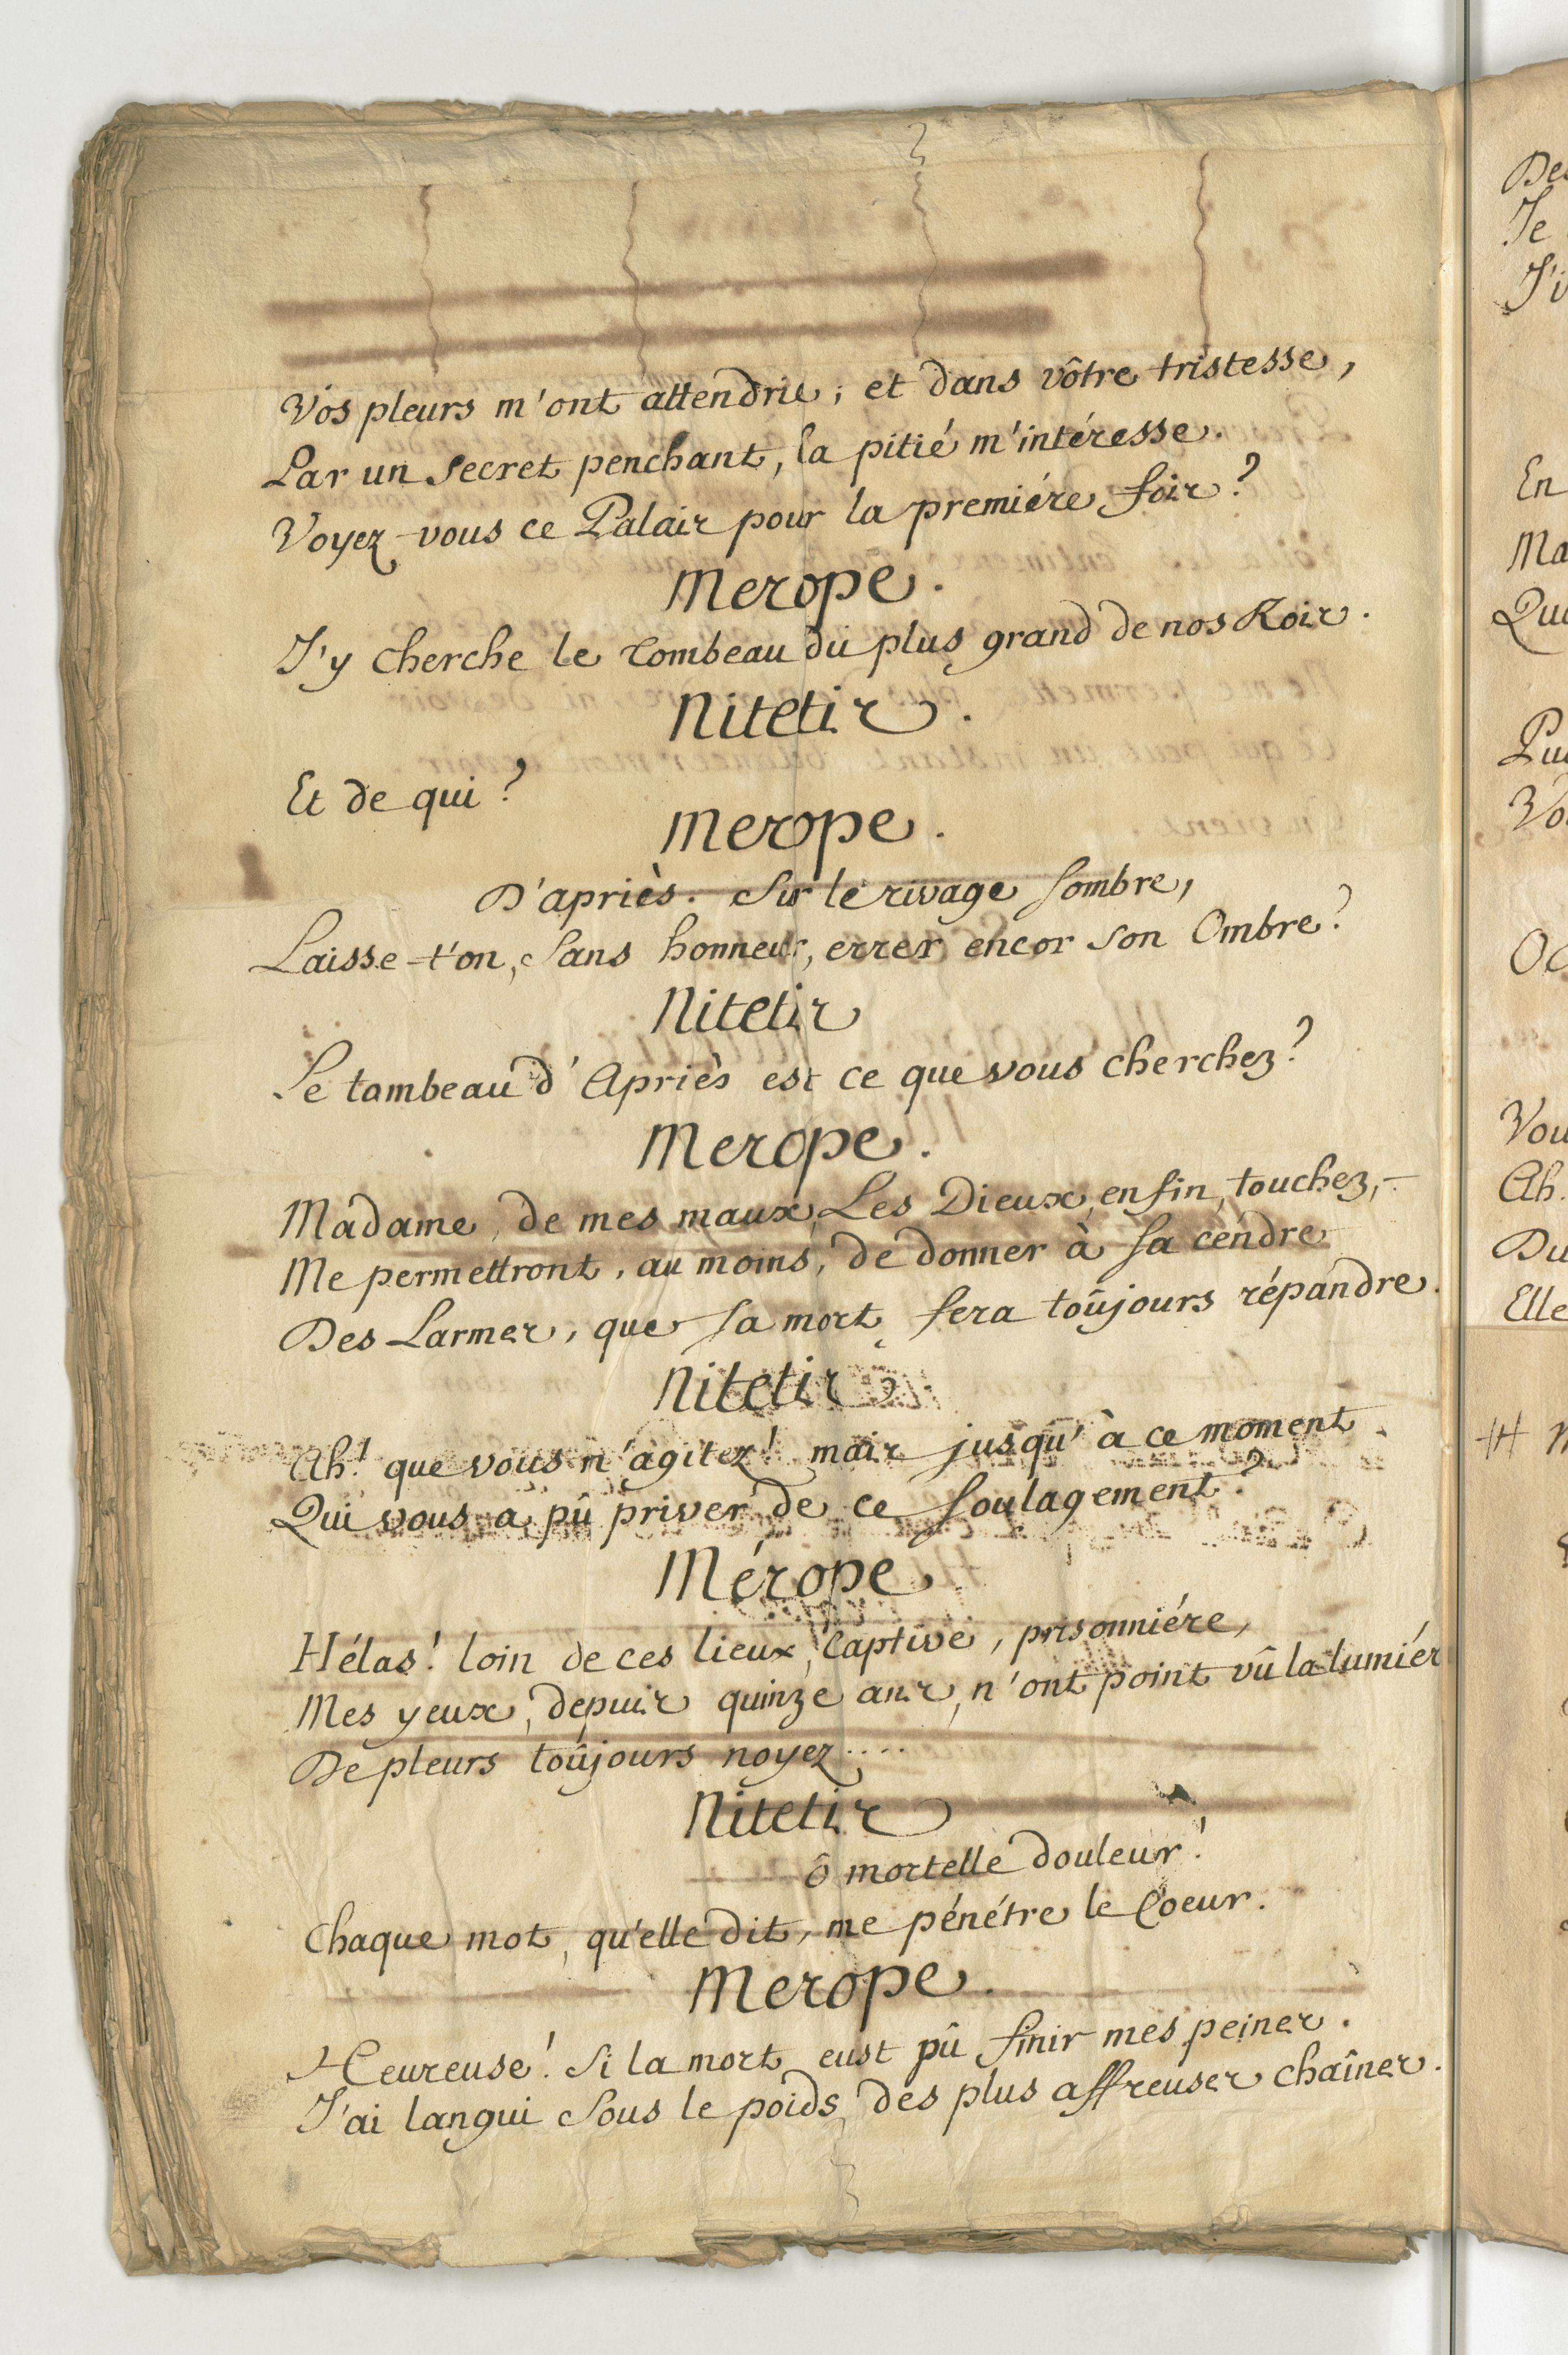 Vos pleurs m'ont attendrie; et dans vôtre tristesse,
Par un secret penchant, la pitié m'intéresse.
Voyez-vous ce Palais pour la premiére fois?
Merope.
J'y cherche le Tombeau du plus grand de nos Rois.
Nitetis.
Et de qui?
Merope.
D'apriès. Sur le rivage sombre,
Laisse-t'on, Sans honneur, errer encor son Ombre?
Nitetis
Le tombeau d'Apriès est ce que vous cherchez?
Merope.
Madame, de mes maux, Les Dieux, enfin, touchez,
Me permettront, au moins, de donner à sa cendre
Des Larmes, que sa mort fera toûjours répandre.
Nitetis
Ah! que vous m'agitez! mais jusqu'à ce moment
Qui vous a pû priver de ce soulagement?
Mérope
Hélas! loin de ces lieux, Captive, prisonniére,
Mes yeux, depuis quinze ans, n'ont point vû la lumiér
De pleurs toûjours noyez....
Nitetis
ô mortelle douleur!
Chaque mot, qu'elle dit, me pénétre le Coeur.
Merope.
Heureuse! Si la mort eust pû finir mes peines.
J'ai langui Sous le poids des plus affreuses chaînes.
De
Je
J'i
En
Ma
Qu
Vo
Vou
Ah.
Du
Elle